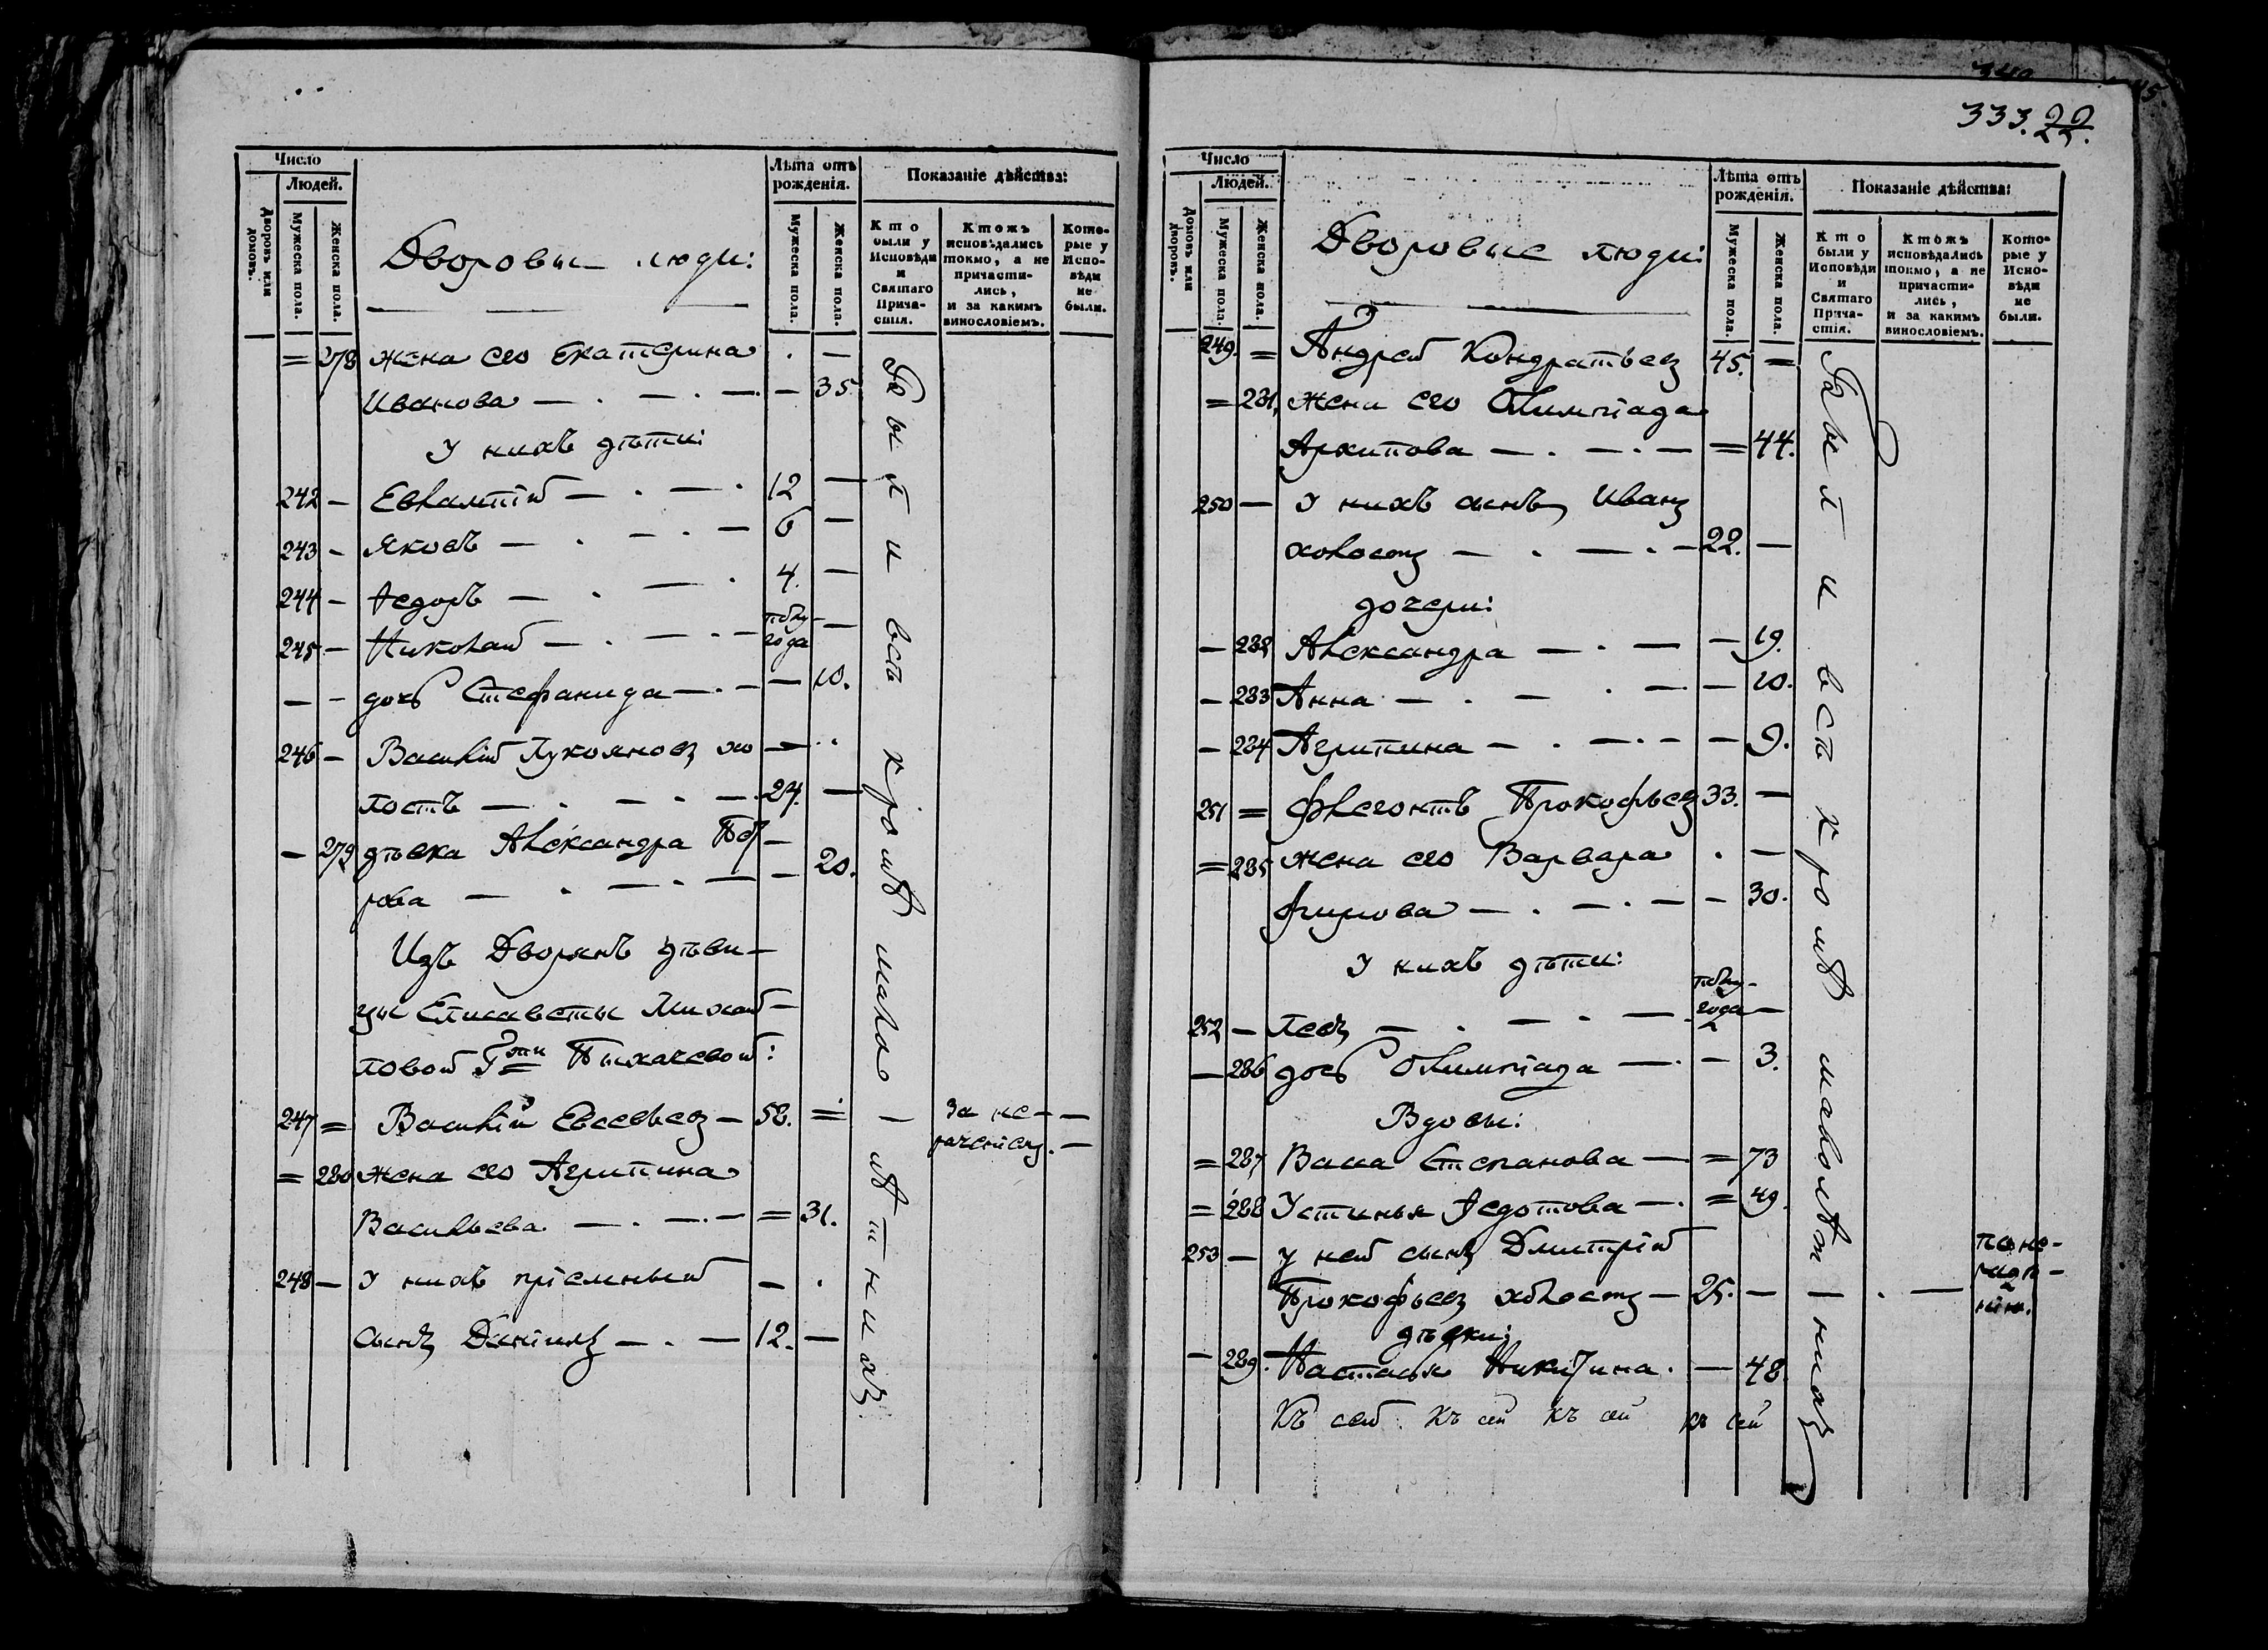 Число
Людей.
Дворовъ или домовъ.
Мужеска пола.
Женска пола.
Дворовые люди:
Лѣта отъ рожденія.
Мужеска пола.
Женска пола.
Показаніе дѣйства:
Кто были у Исповѣди и Святаго Причастія.
Ктожъ исповѣдались токмо, а не причастились, и за какимъ винословіемъ.
Которые у Исповѣди не были.
= 278 жена его Екатерина . —
Иванова — . — . — — 35
У нихъ дѣти:
242 — Евлампій — . — . 12 —
243 — Яковъ — . — . — 6 —
244 — Ѳедоръ — . — . 4. —
245 — Николай — . — . — полу-года —
— — дочь Стефанида — . — — 10.
246 — Василій Лукояновъ хо — .
лостъ — . — . — . 24. —
— 279 дѣвка Александра Пет —
рова — . — . — — 20.
Изъ Дворянъ дѣви-
цы Елисаветы Михай-
ловой Г-жи Пыхачевой:
247 = Василій Евсевьевъ — 58. = — за не- —
раченіемъ. —
= 280 жена его Агрипина
Васильева — . — . — = 31.
248 — У нихъ пріемный — .
сынъ Даніилъ — . — 12. —
Были всѣ кромѣ малолѣтнихъ
333. 22.
Число
Людей.
Домовъ или дворовъ.
Мужеска пола.
Женска пола.
Дворовые люди:
Лѣта отъ рожденія.
Мужеска пола.
Женска пола.
Показаніе дѣйства:
Кто были у Исповѣди и Святаго Причастія.
Ктожъ исповѣдались токмо, а не причастились, и за какимъ винословіемъ.
Которые у Исповѣди не были.
249. = Андрей Кондратьевъ 45. =
= 281, жена его Олимпіада
Архипова — . — . — = 44.
250 — У нихъ сынъ Иванъ
холостъ — . — . — 22. —
дочери:
— 282 Александра — . — — 19.
— 283 Анна — . — . — — 10.
— 284 Агрипина — . — . — — 9.
251 = Флегонтъ Прокофьевъ 33. —
= 285 жена его Варвара . —
Фирсова — . — . — — 30.
У нихъ дѣти:
252 — Левъ — . — . — полу-года —
— 286 дочь Олимпіада — . — 3.
Вдовы:
= 287 Васса Степанова — = 73
= 288 Устинья Ѳедотова — . = 49.
253 — у ней сынъ Дмитрій
Прокофьевъ холостъ — 25. — — . — по не-радѣ-нію.
дѣвки:
— 289. Настасья Никитина . — 48.
Къ сей къ сей къ сей къ сей
Были всѣ кромѣ малолѣтнихъ